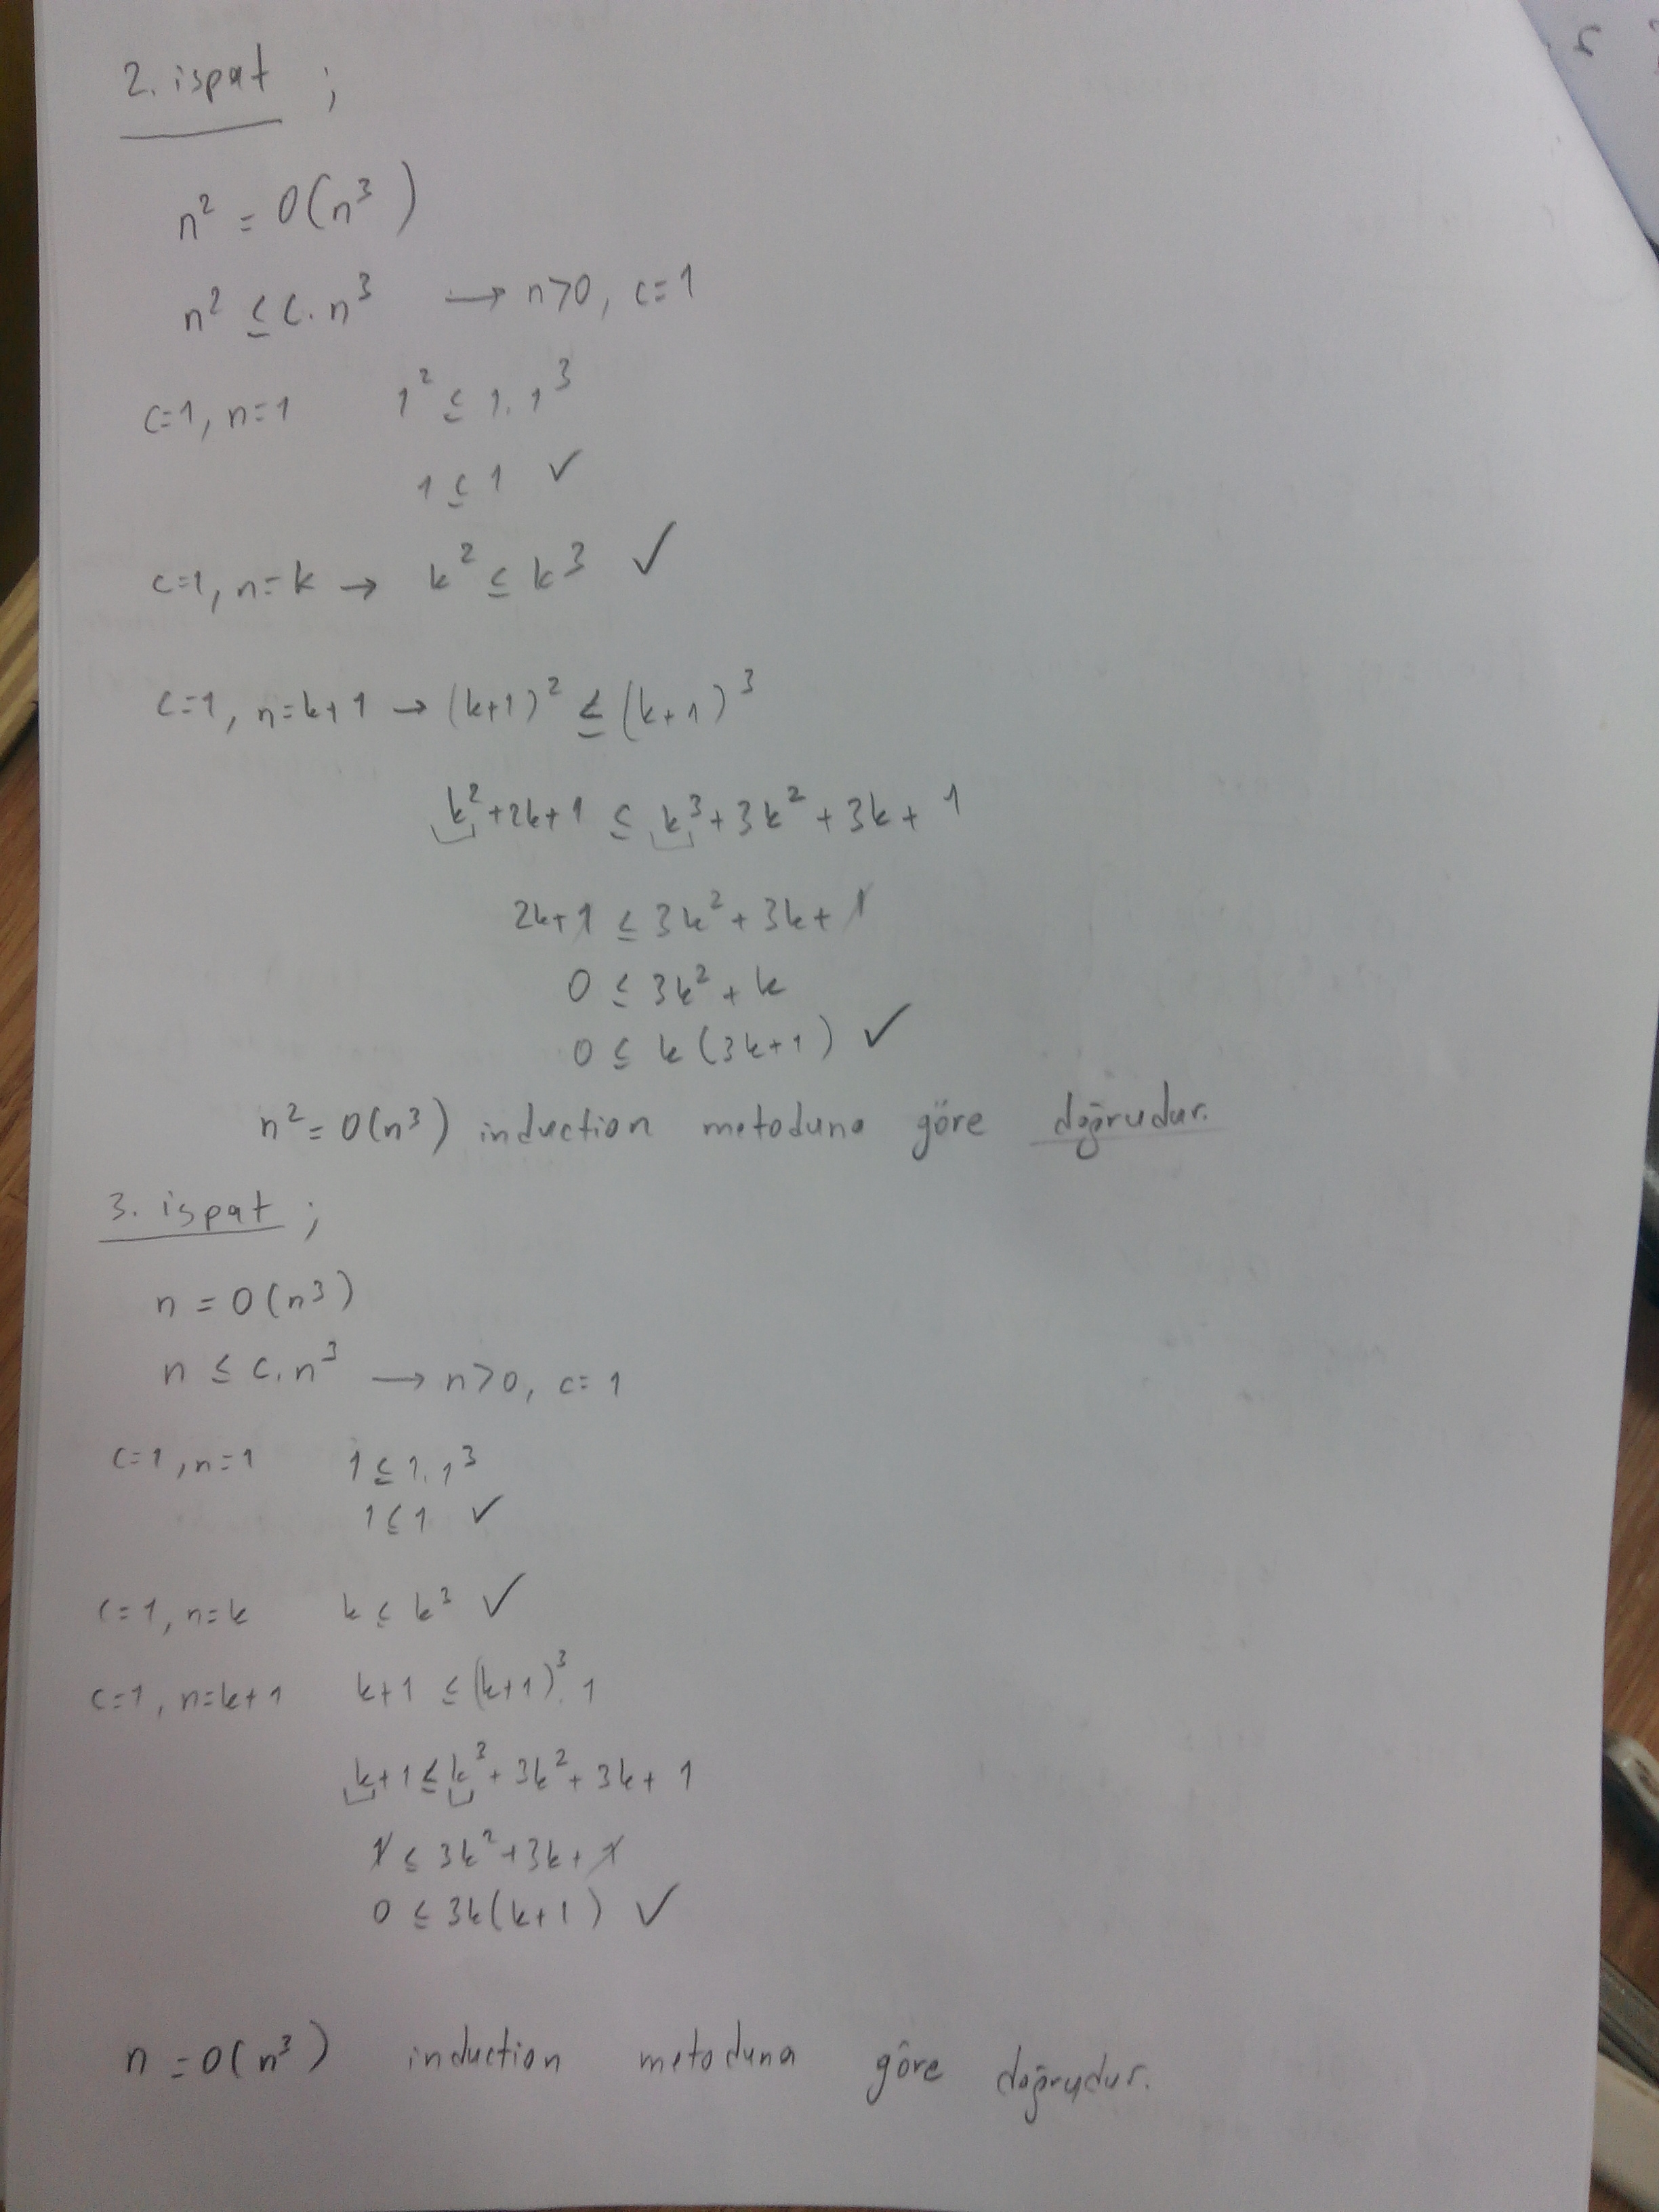 2. ispat ;
n² = O(n³)
n² ≤ c.n³ → n>0, c=1
c=1, n=1 1² ≤ 1.1³
1 ≤ 1 ✓
c=1, n=k → k² ≤ k³ ✓
c=1, n=k+1 → (k+1)² ≤ (k+1)³
k²+2k+1 ≤ k³+3k²+3k+1
2k+1 ≤ 3k²+3k+1
0 ≤ 3k²+k
0 ≤ k(3k+1) ✓
n² = O(n³) induction metoduna göre doğrudur.
3. ispat ;
n = O(n³)
n ≤ c.n³ → n>0, c=1
c=1, n=1 1 ≤ 1.1³
1 ≤ 1 ✓
c=1, n=k k ≤ k³ ✓
c=1, n=k+1 k+1 ≤ (k+1)³.1
k+1 ≤ k³+3k²+3k+1
1 ≤ 3k²+3k+1
0 ≤ 3k(k+1) ✓
n = O(n³) induction metoduna göre doğrudur.